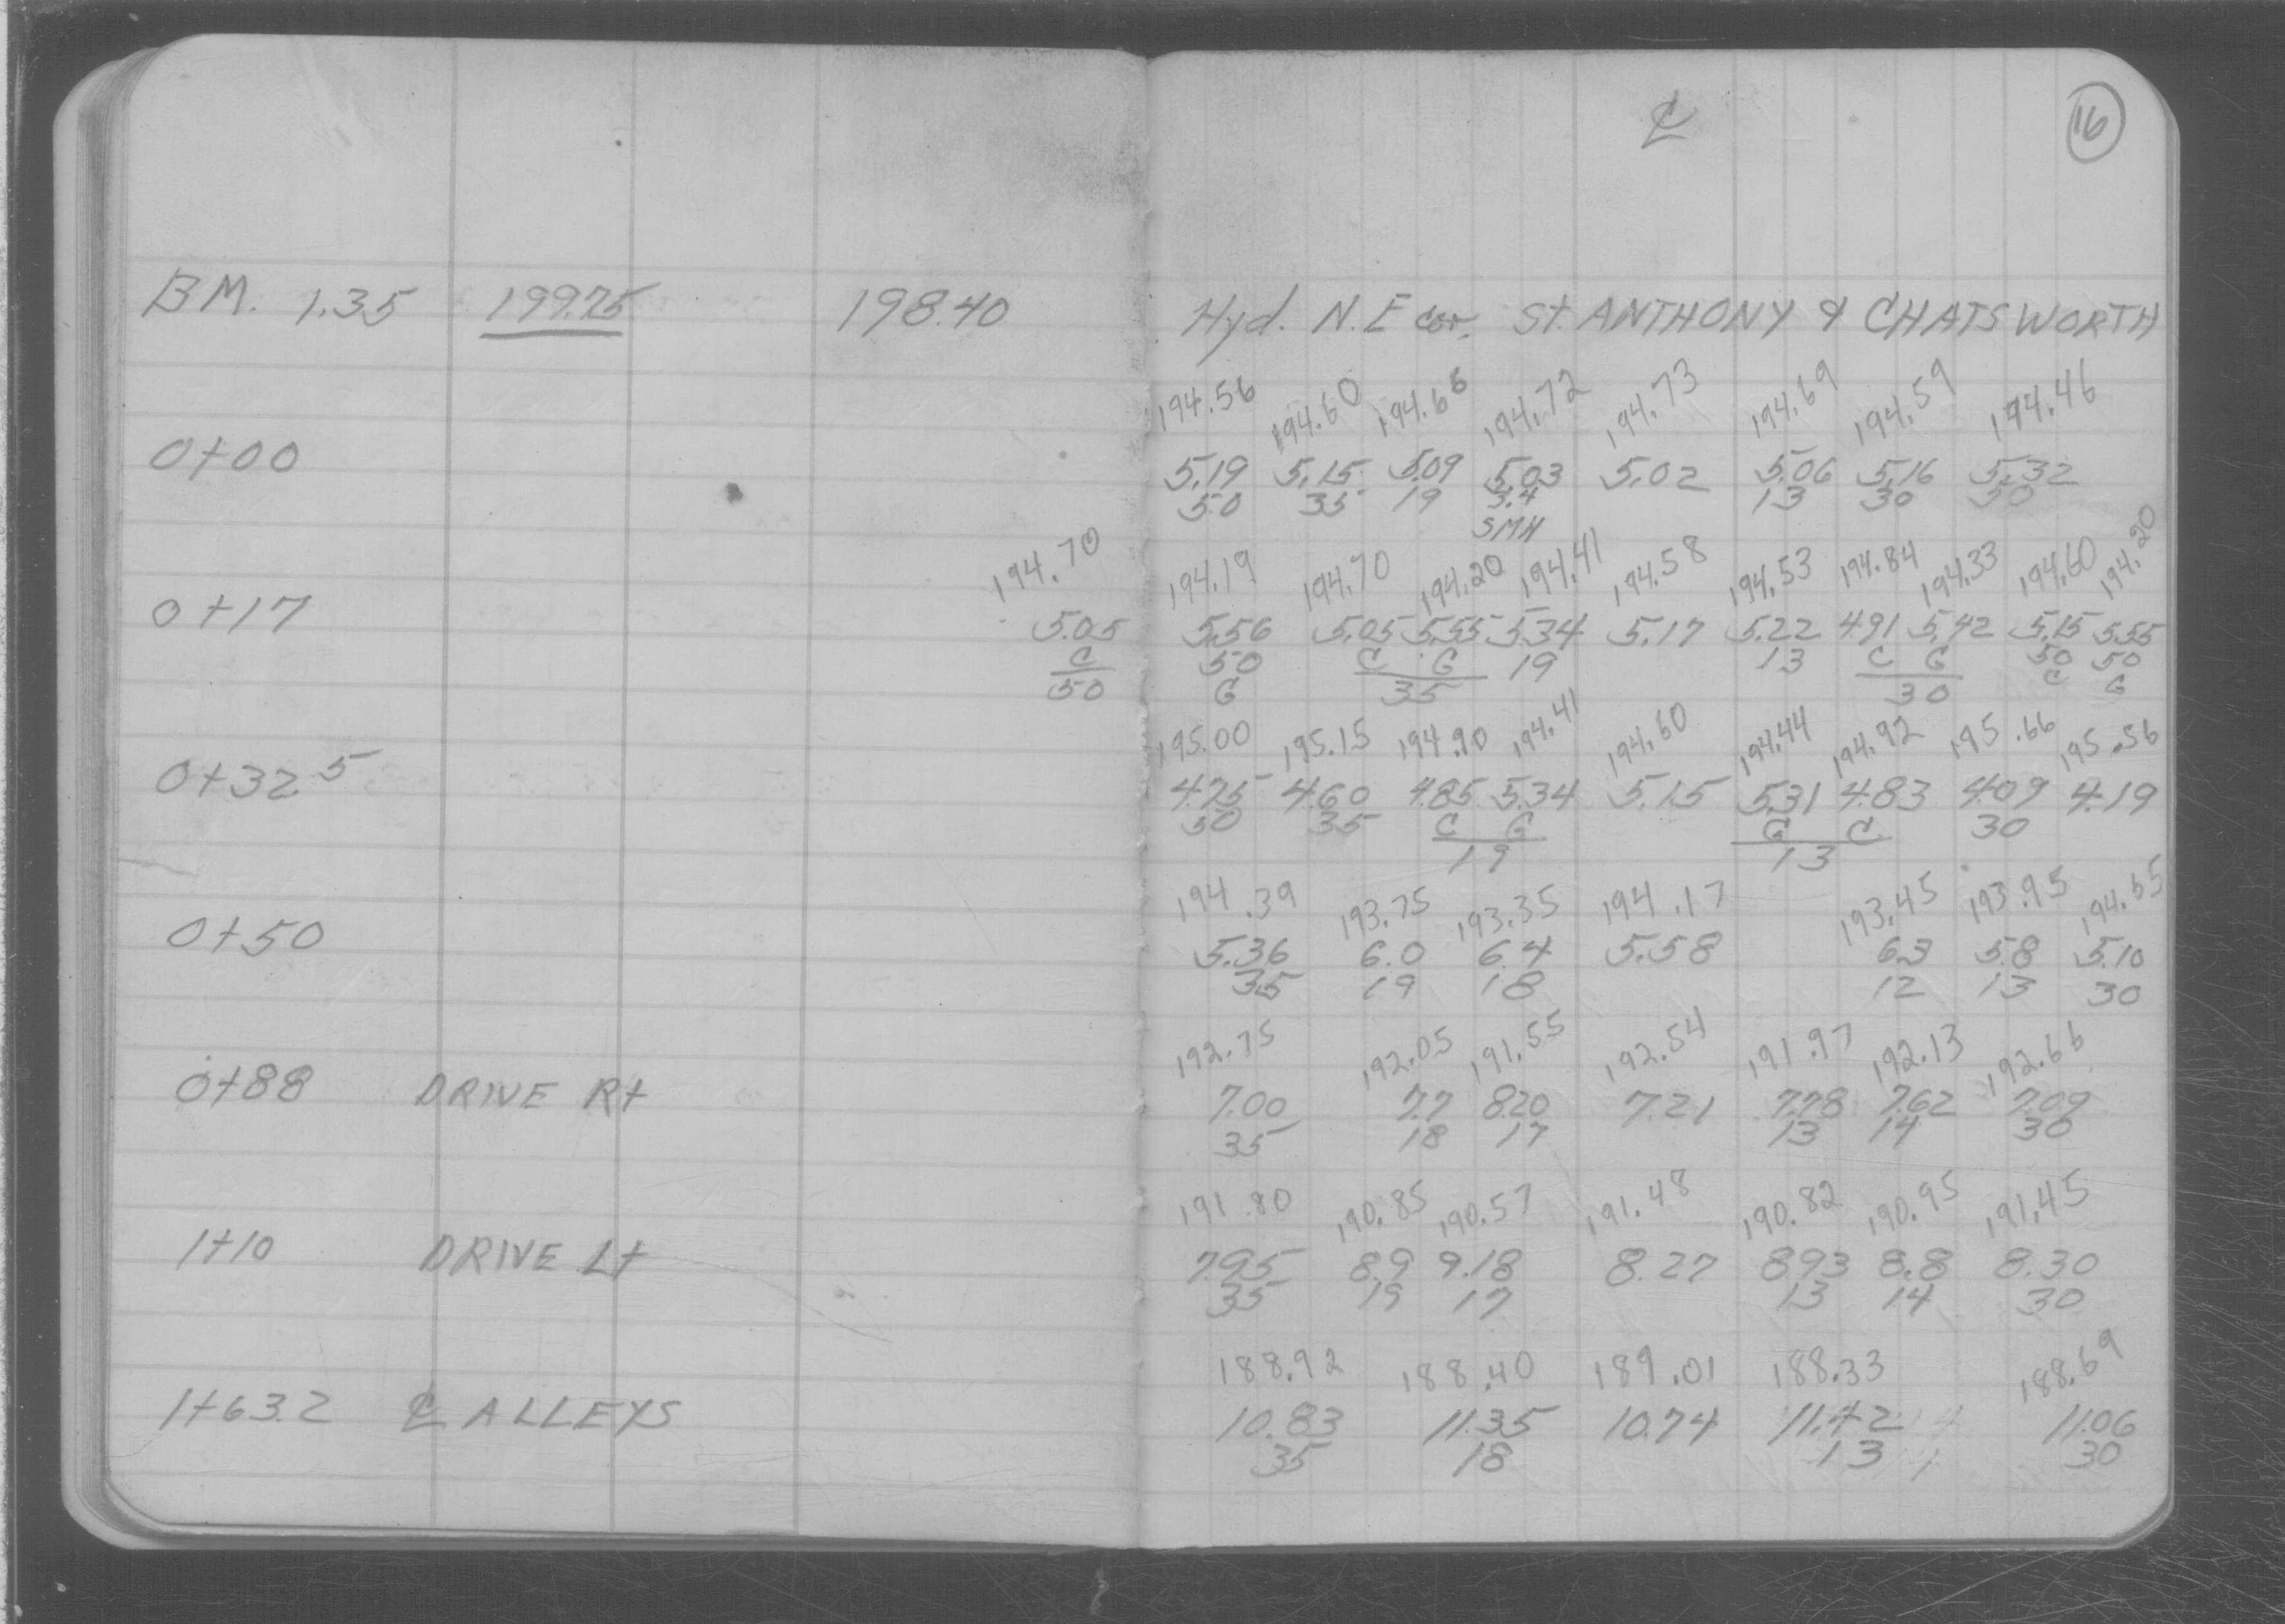 ℄ 16
BM. 1.35 199.75 198.40 Hyd. N.E cor. St. ANTHONY & CHATSWORTH
194.56 194.60 194.66 194.72 194.73 194.69 194.59 194.46
0+00 5.19 5.15 5.09 5.03 5.02 5.06 5.16 5.32
50 35 19 3.4 13 30 50
SMH
194.70 194.19 194.70 194.20 194.41 194.58 194.53 194.84 194.33 194.60 194.20
0+17 5.05 5.56 5.05 5.55 5.34 5.17 5.22 4.91 5.42 5.15 5.55
C 50 C G 19 13 C G 50 50
50 G 35 30 C G
195.00 195.15 194.90 194.41 194.60 194.44 194.92 195.66 195.56
0+32 5 4.75 4.60 4.85 5.34 5.15 5.31 4.83 4.09 4.19
50 35 C G G C 30
19 13
194.39 193.75 193.35 194.17 193.45 193.95 194.65
0+50 5.36 6.0 6.4 5.58 6.3 5.8 5.10
35 19 18 12 13 30
192.75 192.05 191.55 192.54 191.97 192.13 192.66
0+88 DRIVE Rt 7.00 7.7 8.20 7.21 7.78 7.62 7.09
35 18 17 13 14 30
191.80 190.85 190.57 191.48 190.82 190.95 191.45
1+10 DRIVE Lt 7.95 8.9 9.18 8.27 8.93 8.8 8.30
35 19 17 13 14 30
188.92 188.40 189.01 188.33 188.69
1+63.2 ℄ ALLEYS 10.83 11.35 10.74 11.42 11.06
35 18 13 30